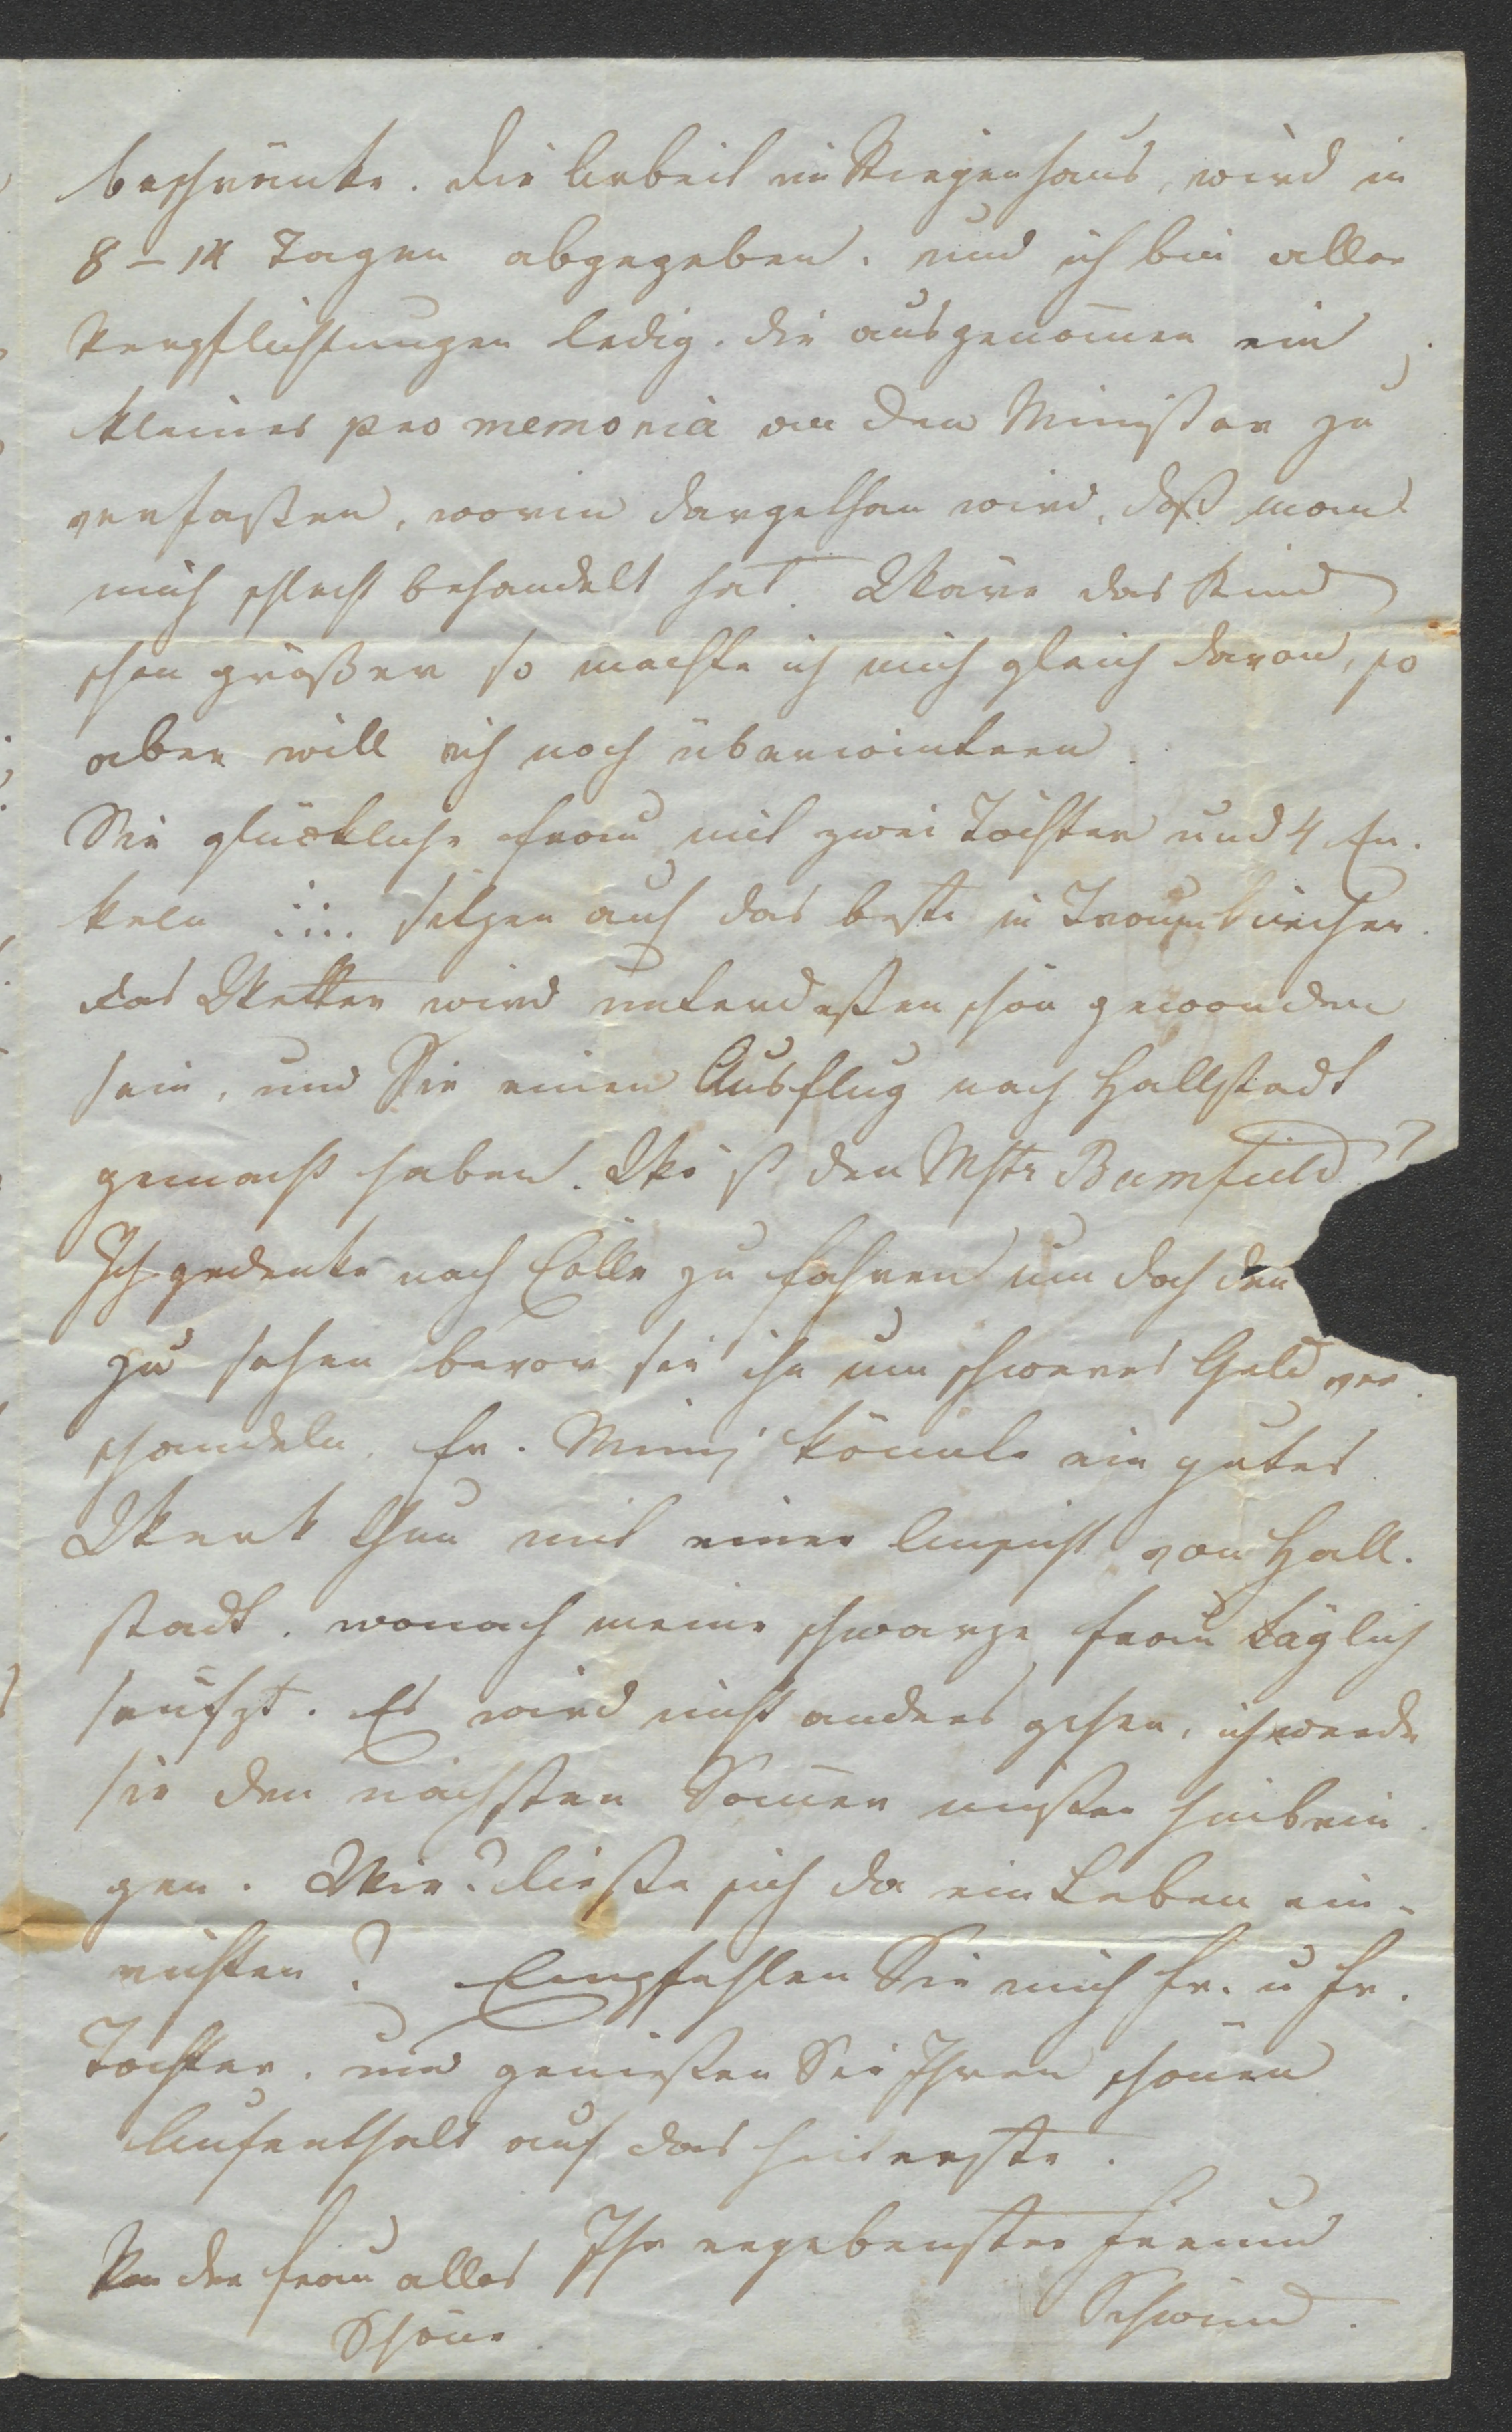 beschränke. die Arbeit im Stiegenhaus, wird in
8 – 14 Tagen abgegeben. und ich bin aller
Verpflichtungen ledig. die ausgenom̅en ein
kleines pro memoria an den Minister zu
verfaßen, worin dargethan wird, daß man
mich schlecht behandelt hat. Wäre das Kind
schon größer so machte ich mich gleich davon, so
aber will ich noch überwintern.
Sie glückliche Frau mit zwei Töchter und 4 En.
keln :::. sitzen auf das beste in Traunkirchen.
das Wetter wird unterdeßen schön geworden
sein, und Sie einen Ausflug nach Hallstadt
gemacht haben. Wo ist der Mstr Bamfield?
Ich gedenke nach Cölln zu fahren um doch den
zu sehen bevor sie ihn um schweres Geld ver.
schandeln. Fr. Mimj könnte ein gutes
Werk thun mit einer Ansicht von Hall.
stadt. wonach meine schwarze Frau täglich
seufzt. Es wird nicht anders gehen, ich werde
sie den nächsten Som̅er müßen hinbrin.
gen. Wie? ließe sich da ein Leben ein-
richten? Empfehlen Sie mich Fr. u Fr.
Tochter. und genießen Sie Ihren schönen
Aufenthalt auf das heiterste.
Ihr ergebenster Freund
Schwind.
Von der Frau alles
Schöne.